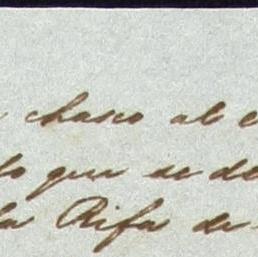 chasco al
lo que se de
la Rifa de